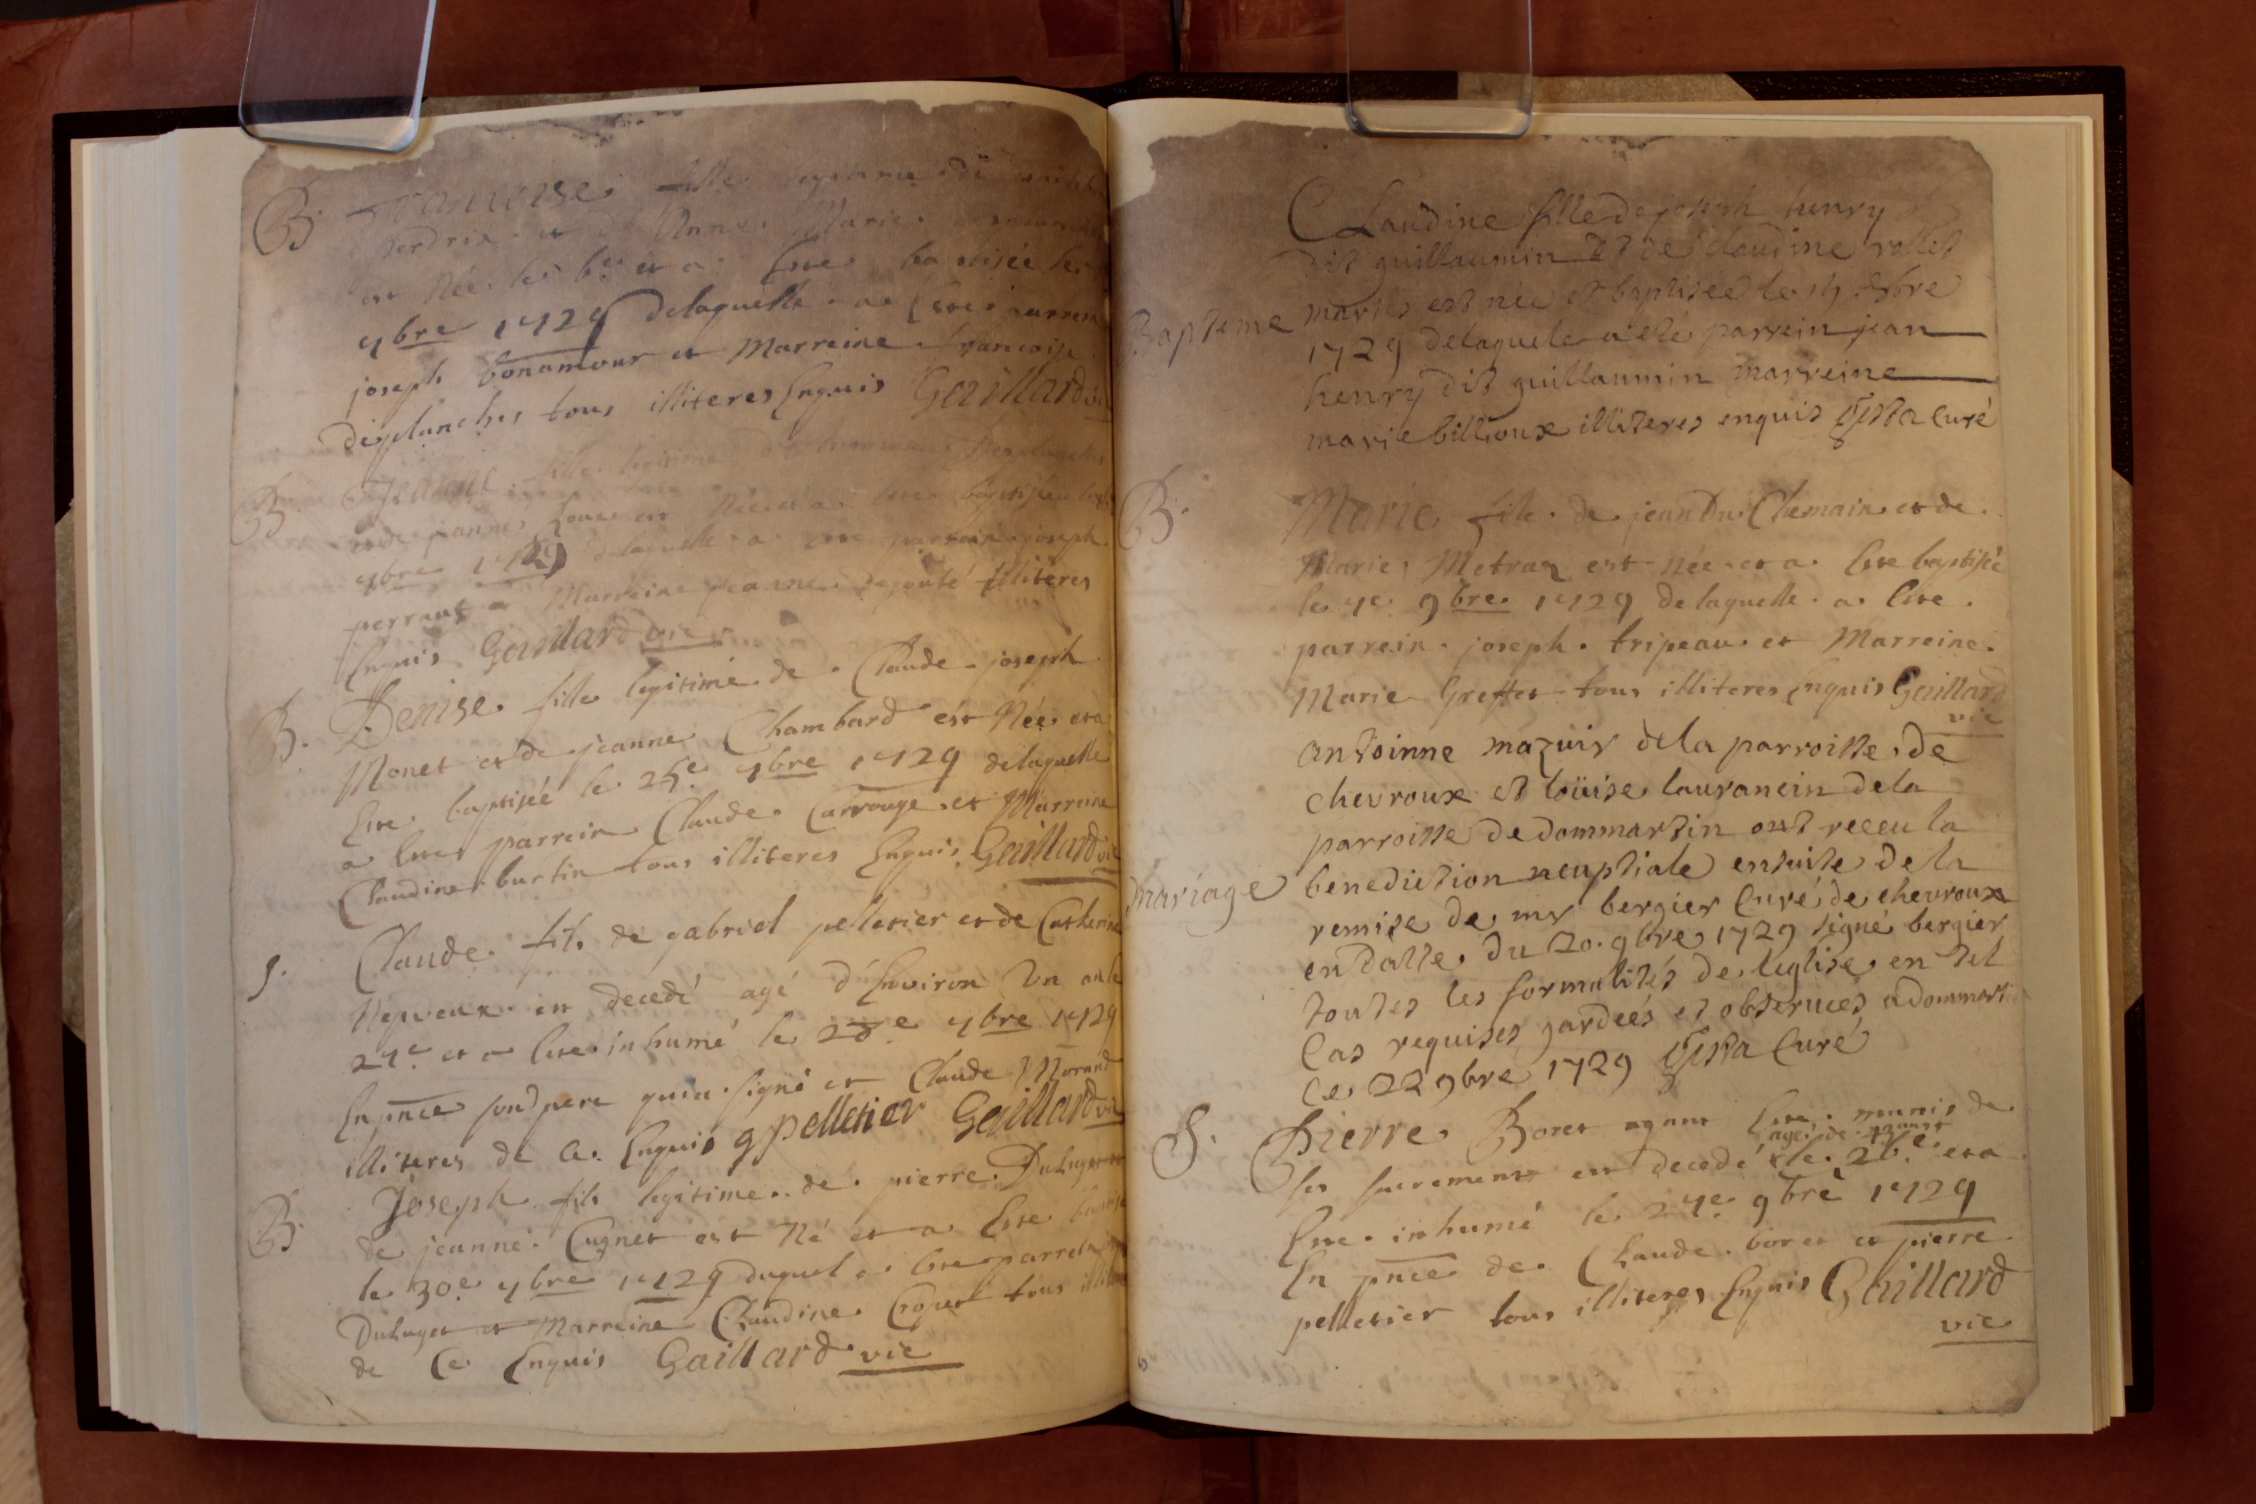 B. Francoise. fille legitime de
perdrix. et de Anne. Marie.
est Née. le 6e. et a. Este. baptisée le
7bre 1729 delaquelle. a Este. parrein
joseph bonamour et Marreine francoise
desplanches tous illiteres Enquis Gaillard vic
B. Jeanne fille legitime de desplanches
et de jeanne est Née et a Este baptisée
7bre 1729 delaquelle a este parrein joseph
perraut Marreine jeanne illiteres
Enquis Gaillard vic
B. Denise. fille legitime de. Claude. joseph
Monet et de jeanne Chambard est Née et a
Este. baptisée le 25e. 7bre 1729 delaquelle
a Este parrein Claude. Carrouge. et Marreine
Claudine burtin tous illiteres Enquis Gaillard vic
S. Claude. fils de gabriel pelletier et de Catherine
Nepveux. est decedé agé d'Environ Un an le
27e et a Este. inhumé le 28e 7bre 1729
En pnce sondpere quia signé et Claude Morand
illiteres de Ce. Enquis g pelletier Gaillard vic
B. Joseph fils legitime. de. pierre. Duhuget et
de jeanne. Cugnet est Né et a Este baptisé
le 30e 7bre 1729 duquel a Este parrein
Duhuget et Marreine Claudine. tous
de Ce Enquis Gaillard vic
Claudine fille de joseph henry
dit guillaumin Et de claudine rollet
Bapteme mariés est née et baptisée le
1729 delaquele a eté parrein jean
henry dit guillaumin marreine
marie billioux illiteres enquis Curé
B. Marie fille. de jean Du. Chemain. et de.
Marie. Metraz est Née. et a. Este baptisée
le 7e 9bre. 1729 de laquelle. a. Este.
parrein. joseph. tripeau. et Marreine.
Marie Greffet tous illiteres Enquis Gaillard
vic
antoinne mazuir dela parroisse. de
chevroux et loüise lauranein dela
parroisse de dommartin ont receu la
mariage benediction neuptiale ensuite de la
remise de mr bergier Curé de chevroux
en datte. du 20. 9bre 1729 signé bergier
toutes les formalités de leglise. en tel
Cas requises gardées et observées a dommarti
Ce 22 9bre 1729 Curé
S. Pierre. Boret ayant Este. munis de
agé de
ses sacrements est decedé le. 26.e et a
Este. inhumé le 27e 9bre 1729
En pnce de. Claude. boret et pierre
pelletier tous illiteres Enquis Gaillard
vic